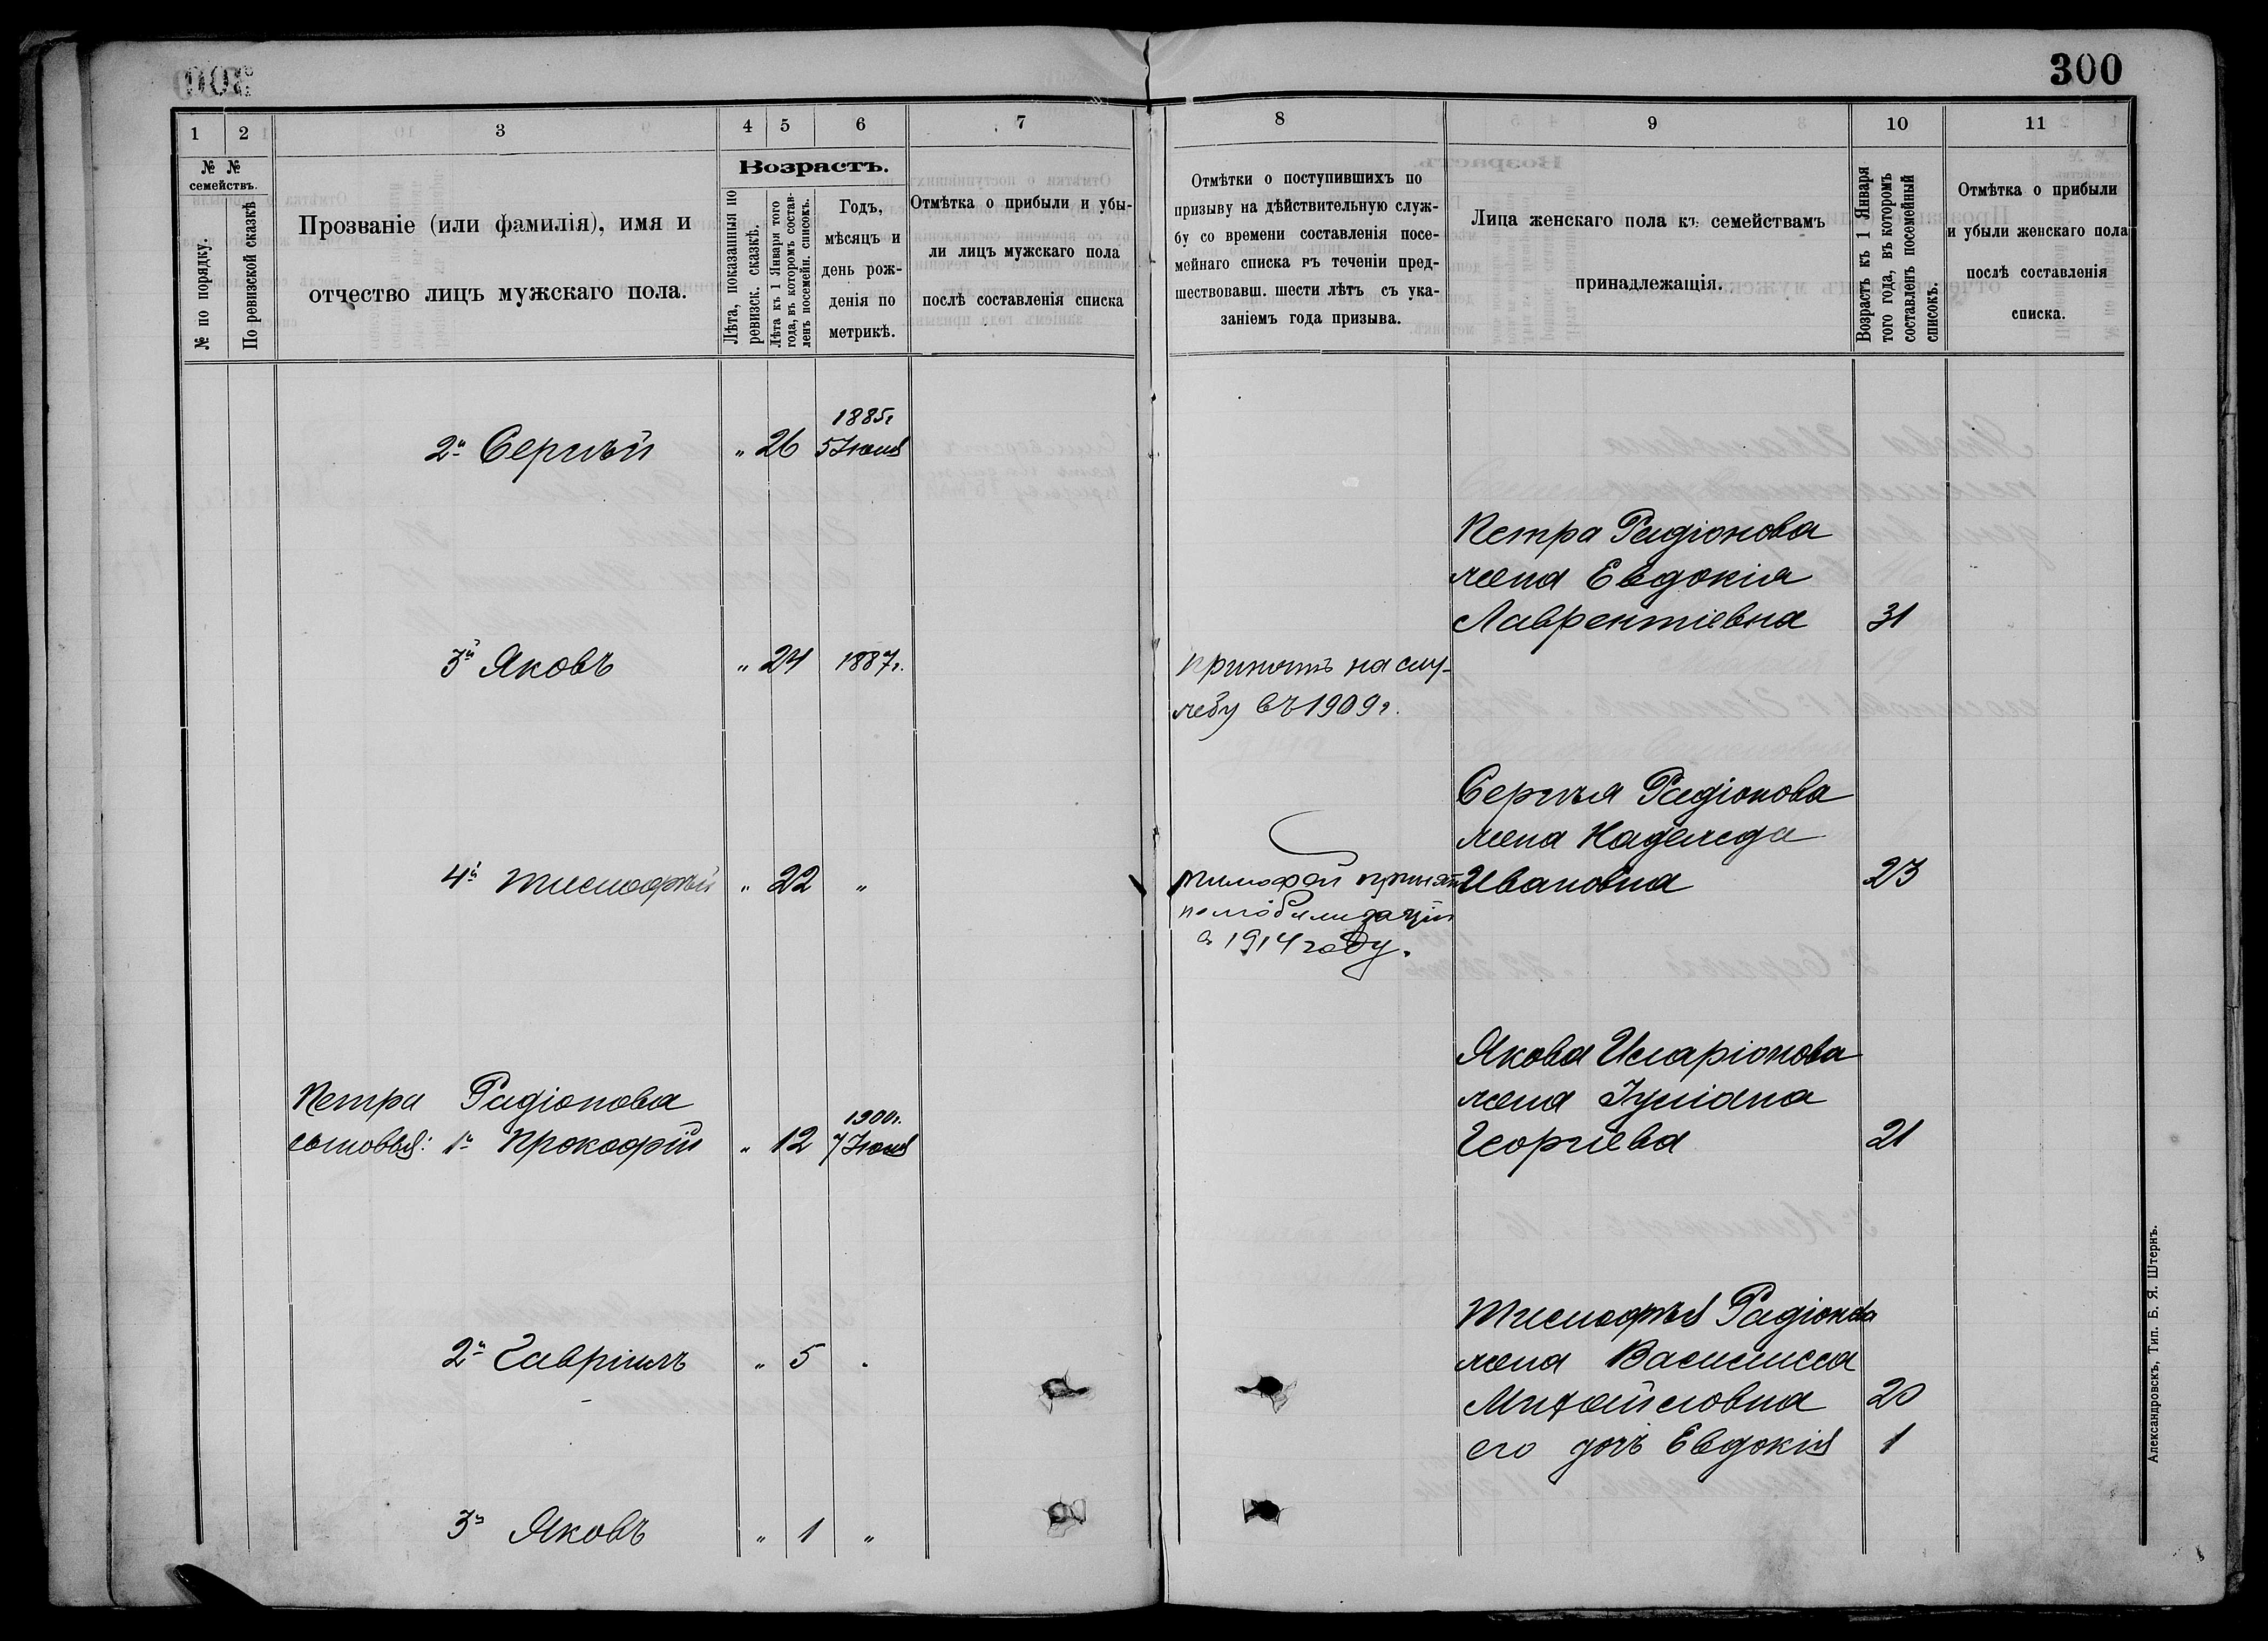 300
1
2
3
4
5
6
7
№ №
семействъ.
№ по порядку.
По ревизской сказкѣ
Прозваніе (или фамилія), имя и
отчество лицъ мужскаго пола.
Возрастъ.
Лѣта, показанныя по
ревизск. сказкѣ.
Лѣта къ 1 Января того
года, въ которомъ состав-
ленъ посемейн. списокъ.
Годъ,
мѣсяцъ и
день рож-
денія по
метрикѣ.
Отмѣтка о прибыли и убы-
ли лицъ мужскаго пола
послѣ составленія списка
1885г
2й Сергѣй " 26 5 Іюня
3й Яковъ " 24 1887г.
4й Тимофѣй " 22 "
Петра Радіонова
1900г.
сыновья: 1й Прокофій " 12 7 Іюня
2й Гавріилъ " 5 "
3й Яковъ " 1 "
8
9
10
11
Отмѣтки о поступившихъ по
призыву на дѣйствительную служ-
бу со времени составленія посе-
мейнаго списка въ теченіи пред-
шествовавш. шести лѣтъ съ ука-
заніемъ года призыва.
Лица женскаго пола къ семействамъ
принадлежащія.
Возрастъ къ 1 Января
того года, въ которомъ
составленъ посемейный
списокъ.
Отмѣтка о прибыли
и убыли женскаго пола
послѣ составленія
списка.
Петра Радіонова
жена Евдокія
Лаврентіевна 31
принятъ на слу-
жбу въ 1909г.
Сергѣя Радіонова
жена Надежда
Ивановна 23
Тимофей принят
по мобилизаціи
в 1914 году.
Якова Иларіонова
жена Іуліана
Георгіева 21
Тимофѣя Радіонова
жена Василисса
Михайловна 20
его дочь Евдокія 1
Александровскъ, Тип. Б. Я. Штернъ.